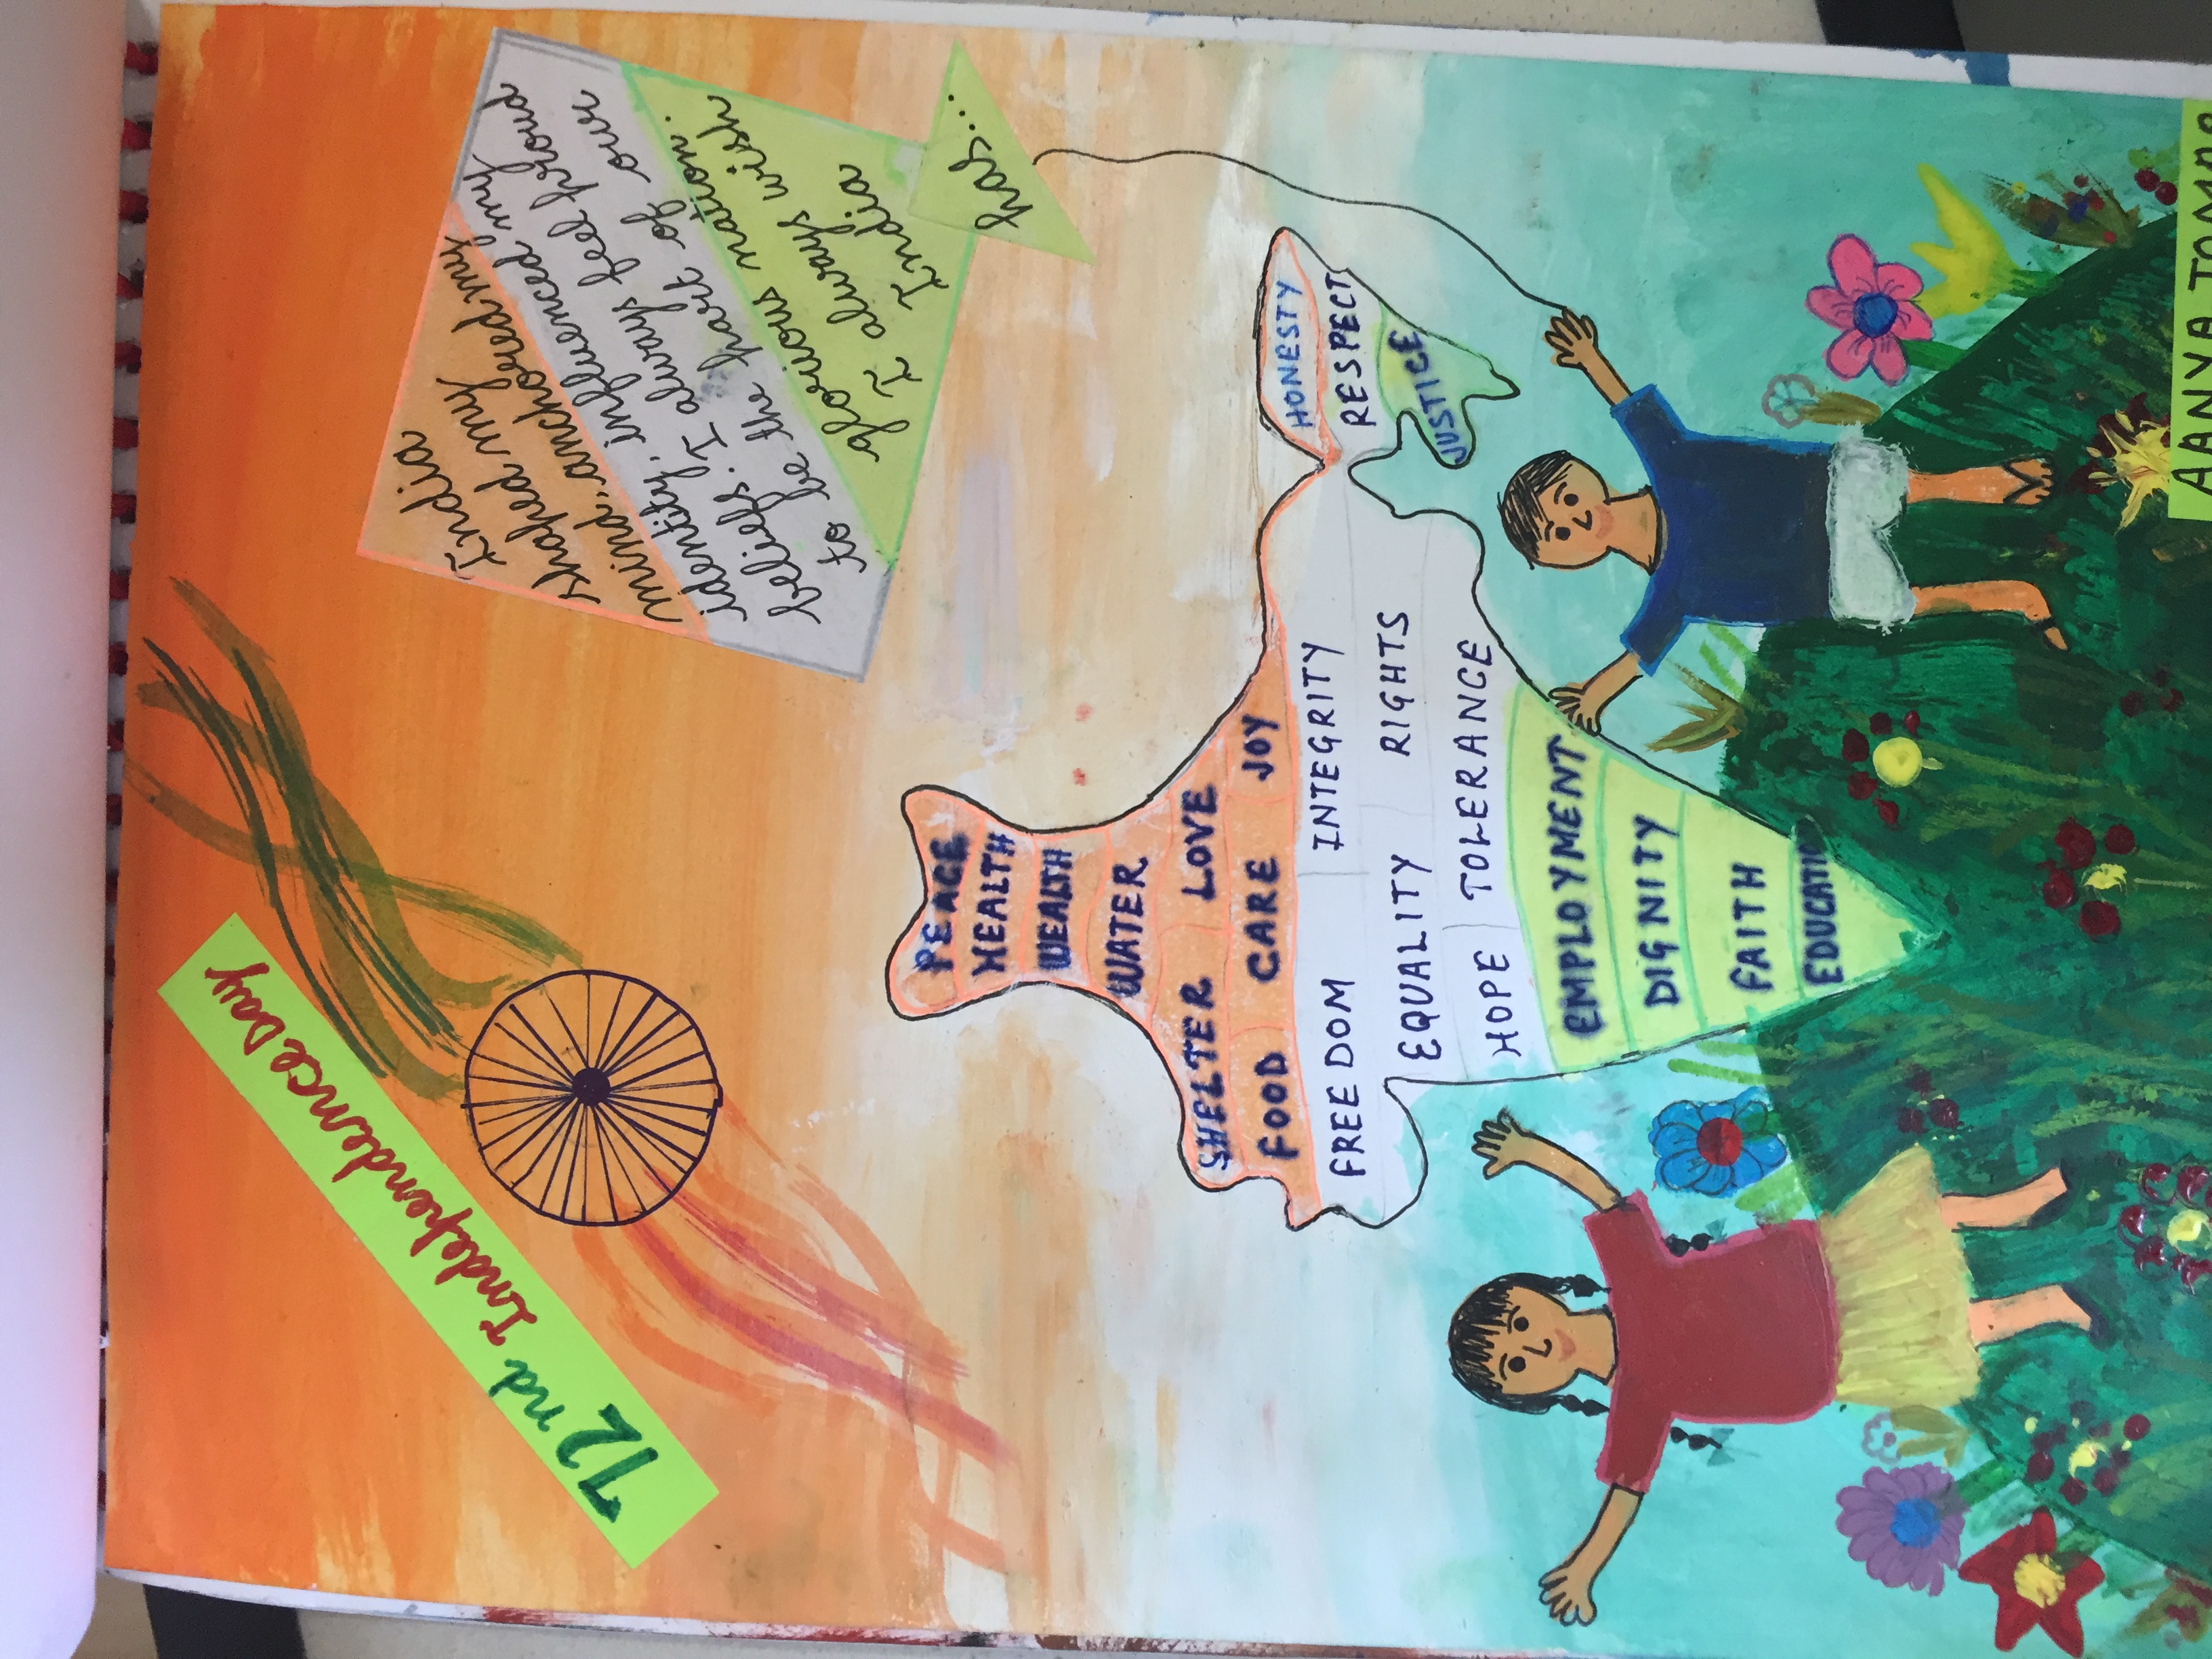 72nd Independence Day
India
shaped my
mind, anchored my
identity, influenced my
beliefs. I always feel proud
to be the part of our
glorious nation.
I always wish
India
has...
PEACE
HEALTH
WEALTH
WATER
SHELTER LOVE
FOOD CARE JOY
HONESTY
FREEDOM INTEGRITY
RESPECT
EQUALITY RIGHTS
JUSTICE
HOPE TOLERANCE
EMPLOYMENT
DIGNITY
FAITH
EDUCATION
AANYA TOMAR